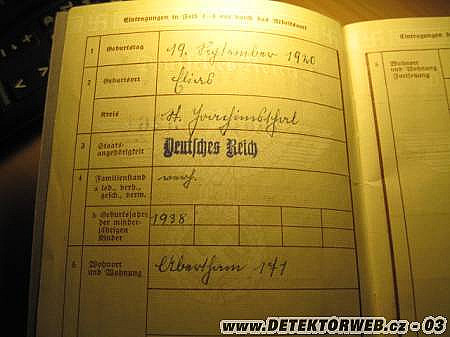 Eintragungen in Feld 1–6 nur durch das Arbeitsamt
1 Geburtstag 19. September 1920
2 Geburtsort Elias
Kreis St. Joachimsthal
3 Staats-
angehörigkeit Deutsches Reich
4 Familienstand
a led., verh.,
gesch., verw. verh.
b Geburtsjahr
der minder-
jährigen
Kinder 1938
5 Wohnort
und Wohnung Abertham 171
Eintragungen
Wohnort
und Wohnung
Fortsetzung
www.DETEKTORWEB.cz - 03